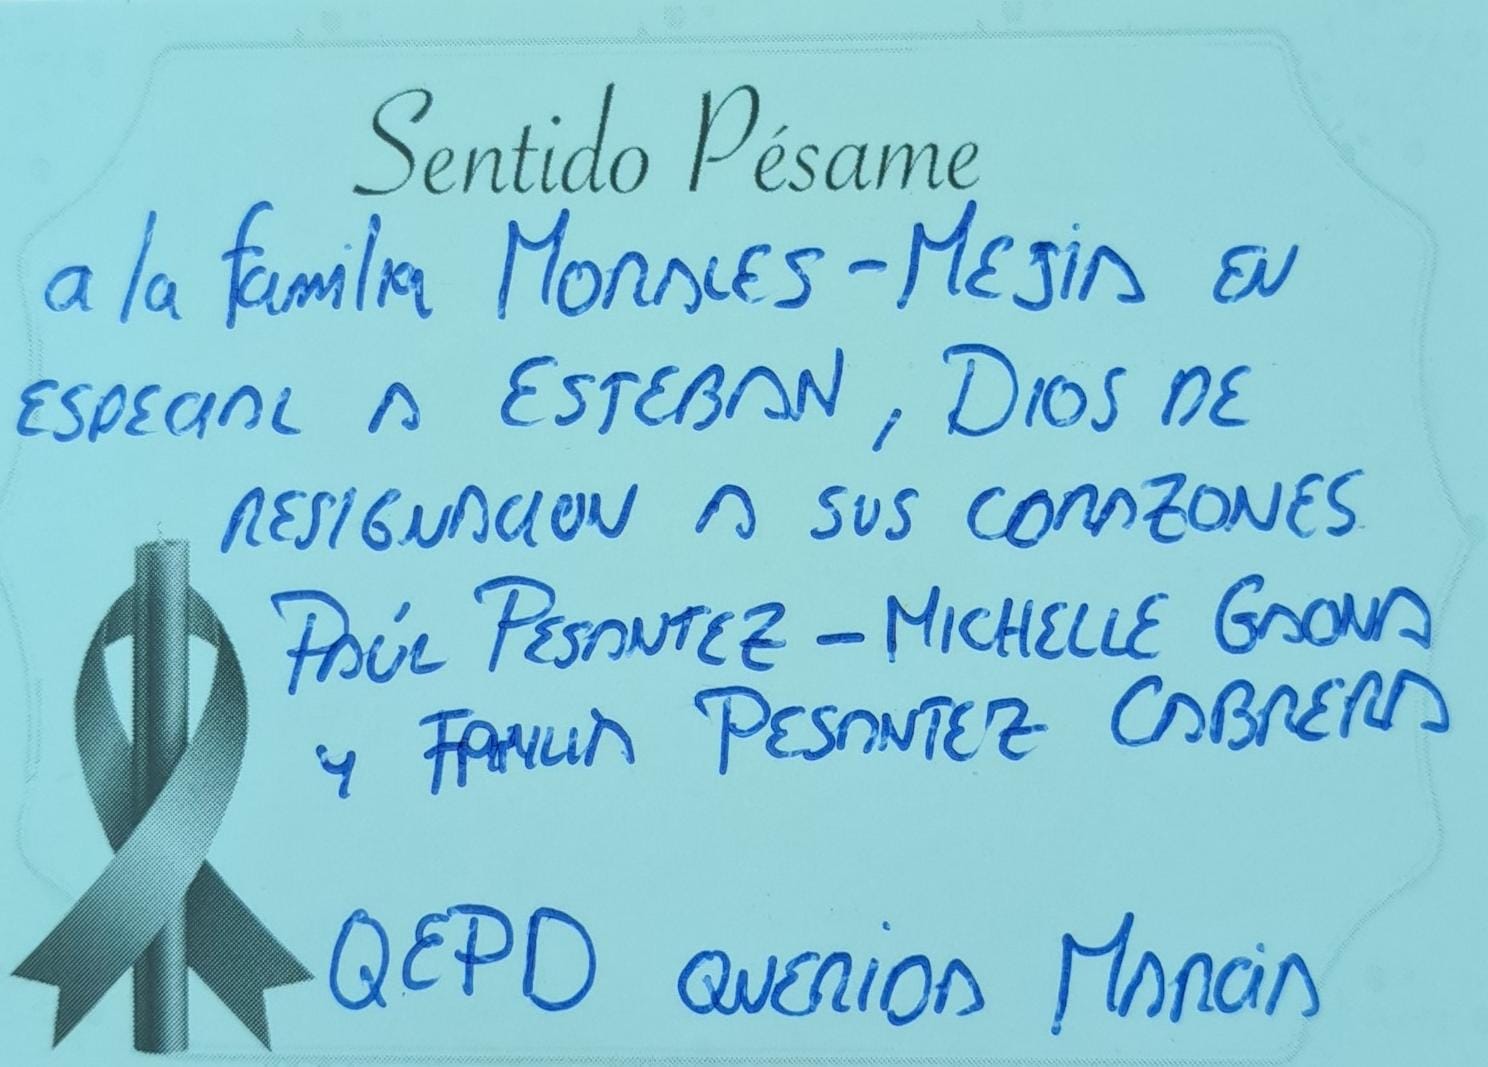 Sentido Pésame
a la familia MORALES - MEJIA EN
ESPECIAL A ESTEBAN, DIOS DE
RESIGNACION A SUS CORAZONES
PAÚL PESANTEZ - MICHELLE GAONA
Y FAMILIA PESANTEZ CABRERA
QEPD QUERIDA MARCIA